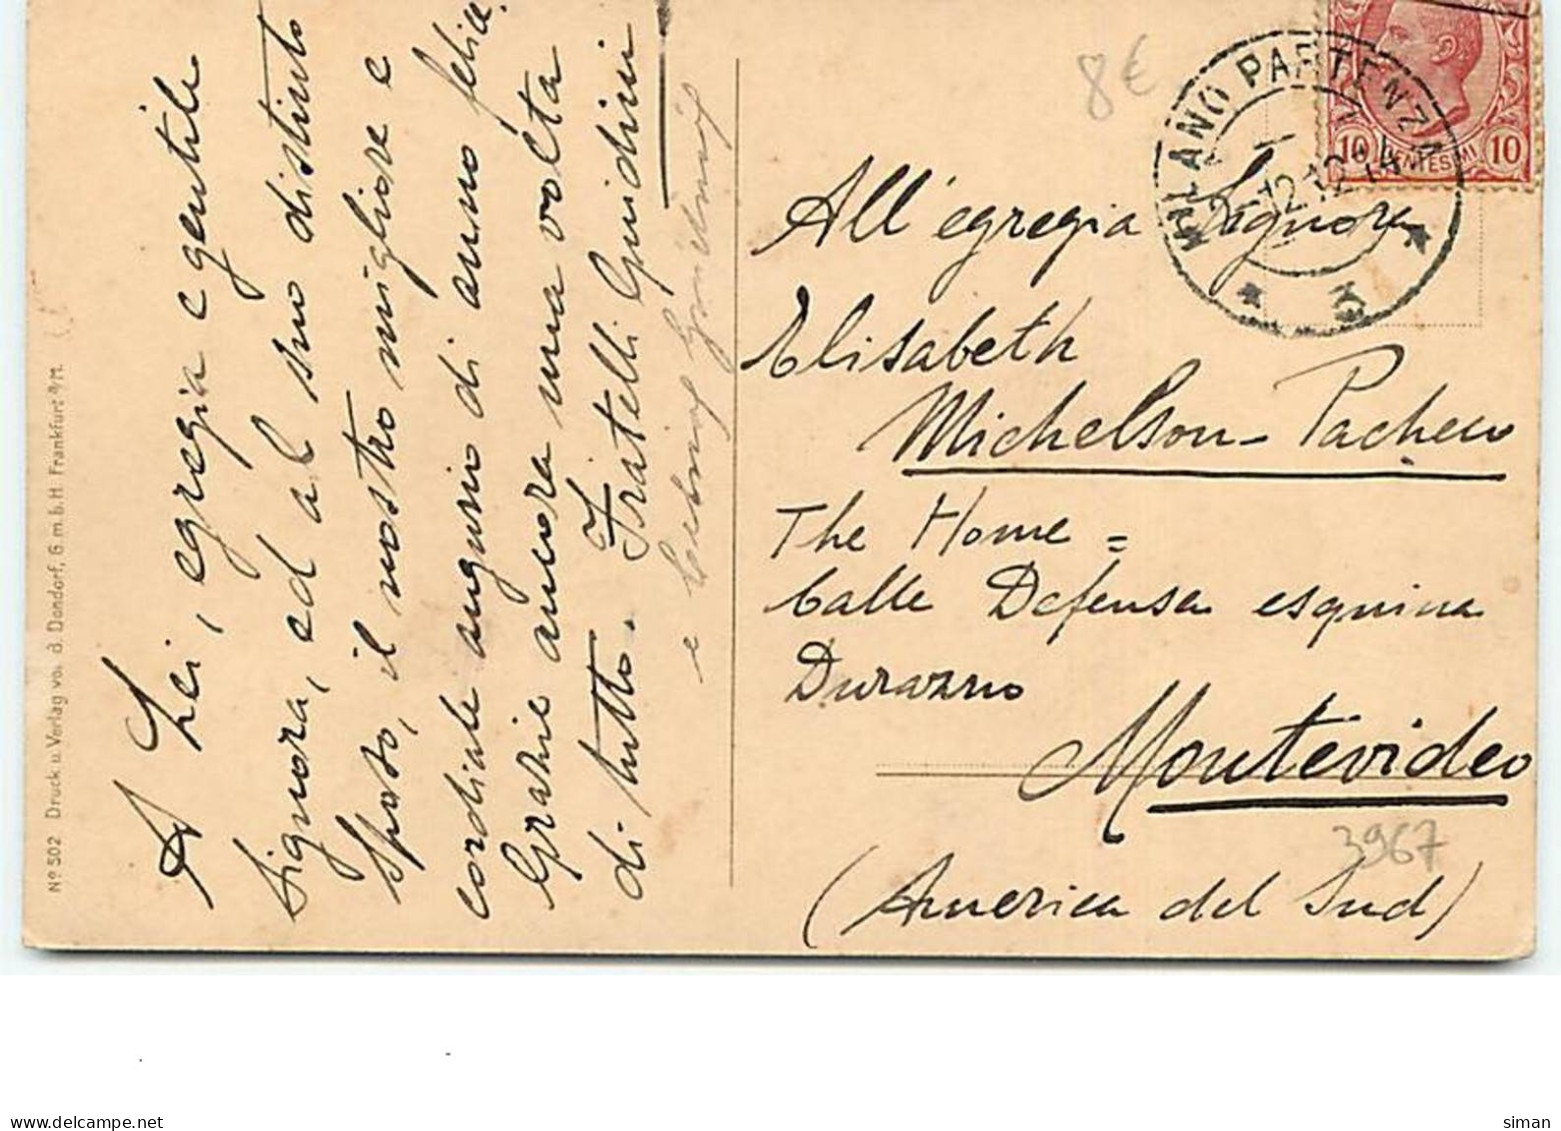 A Lei, egregia e gentile
Signora, ed al suo distinto
sposo, il nostro migliore e
cordiale augurio di anno felice.
Grazie ancora una volta
di tutto. Fratelli Guidini
e
Nº 502 Druck u. Verlag von B. Dondorf, G.m.b.H. Frankfurt a/M.
8€
MILANO PARTENZA
12.12
3
10 CENTESIMI 10
All'egregia Signora
Elisabeth
Michelson-Pacheco
The Home =
Calle Defensa esquina
Durazno
Montevideo
3967
(America del Sud)
delcampe.net
siman